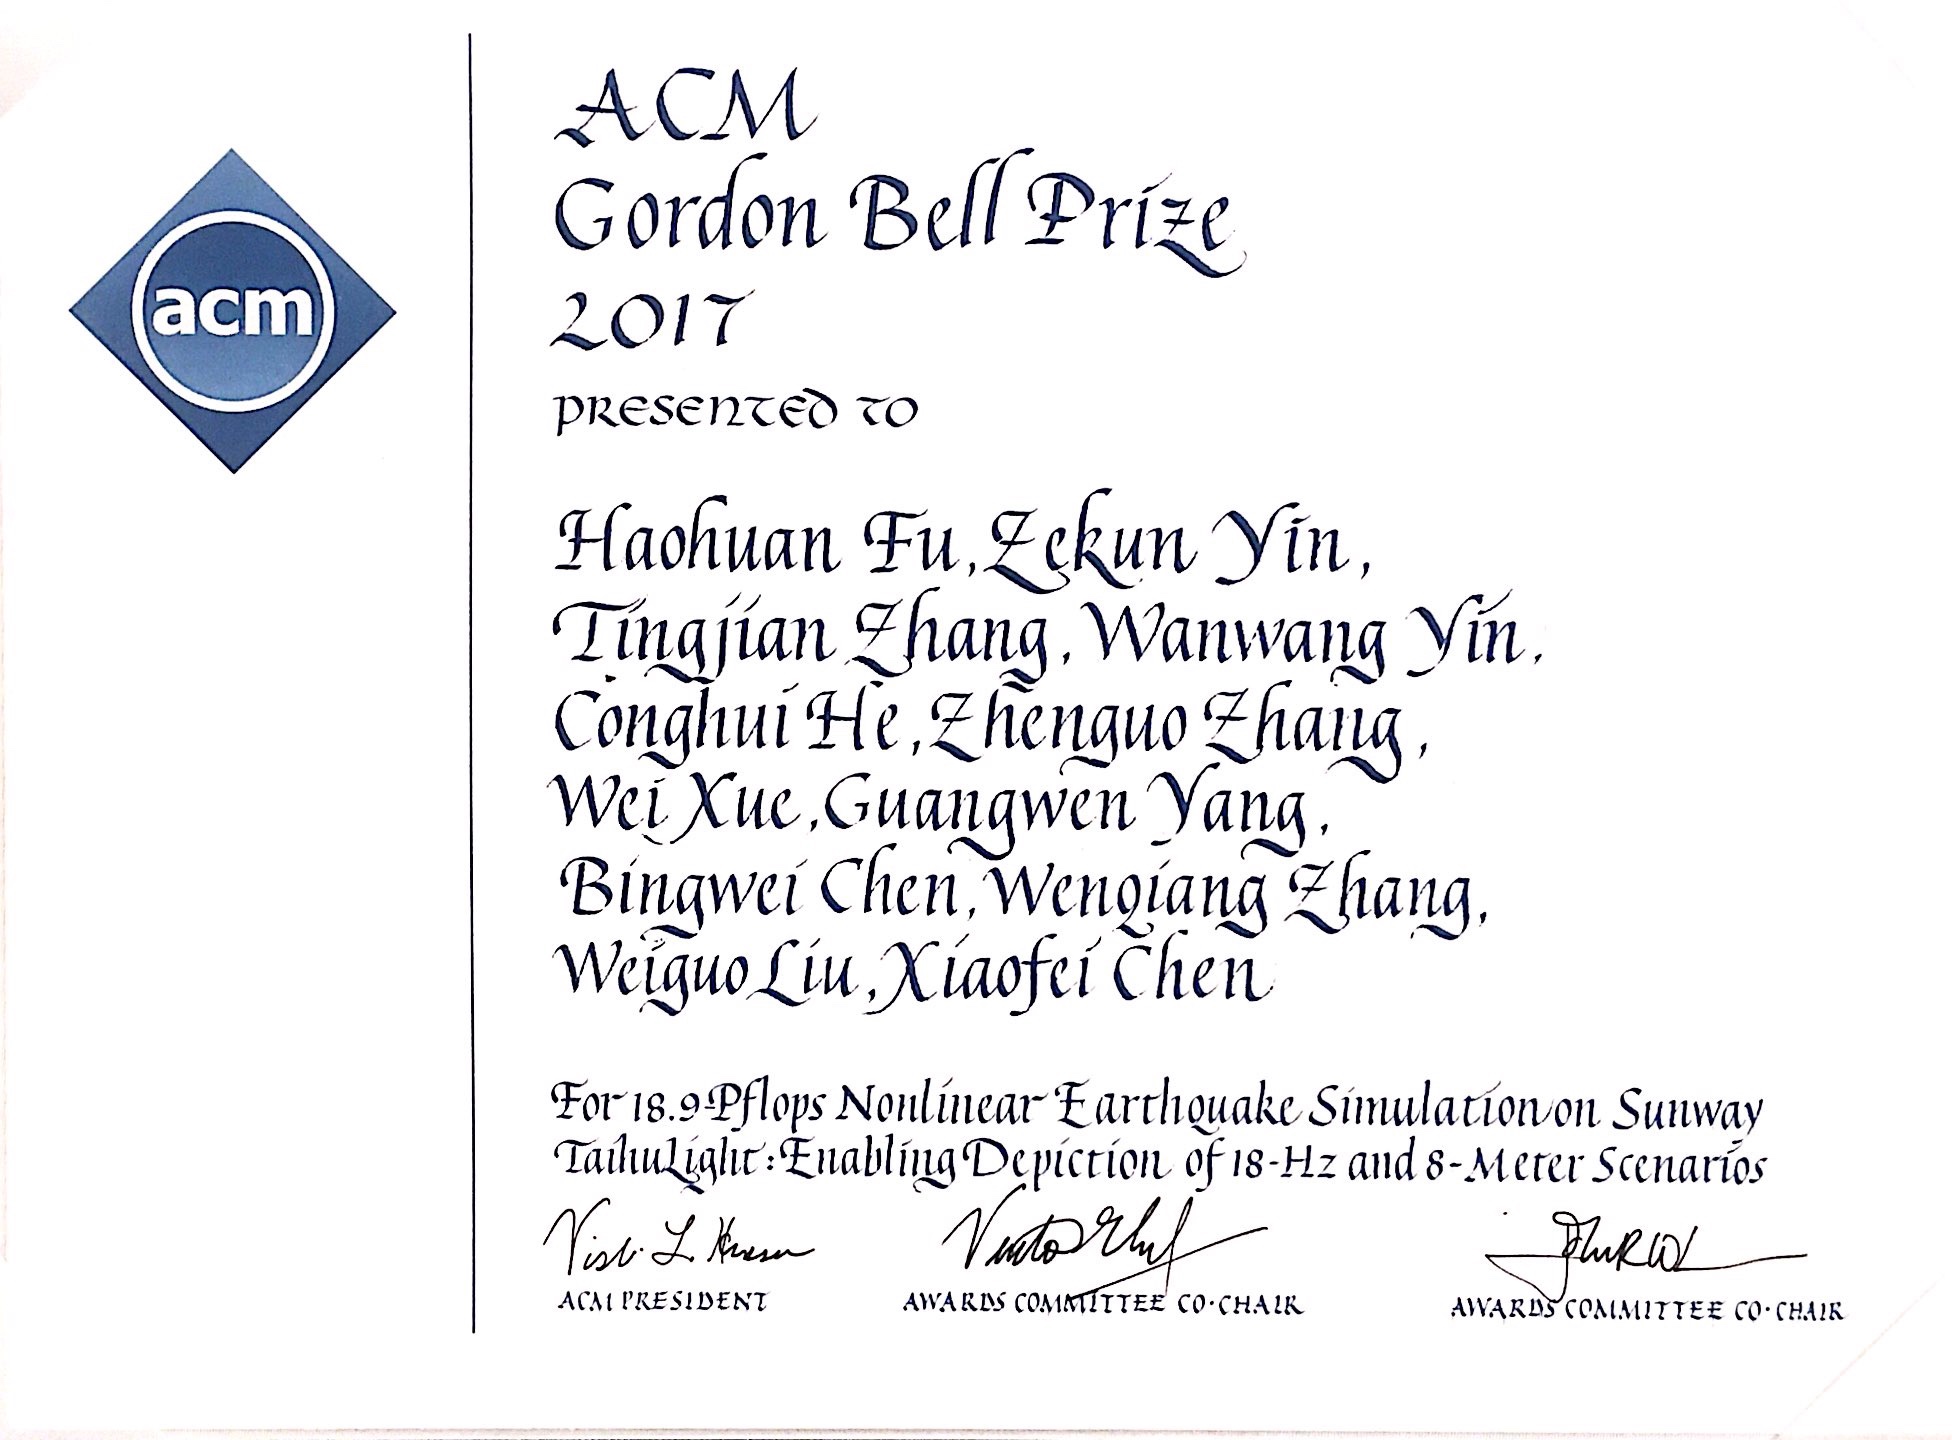 acm
ACM
Gordon Bell Prize
2017
PRESENTED TO
Haohuan Fu, Zekun Yin,
Tingjian Zhang, Wanwang Yin,
Conghui He, Zhenguo Zhang,
Wei Xue, Guangwen Yang,
Bingwei Chen, Wenqiang Zhang,
Weiguo Liu, Xiaofei Chen
For 18.9-Pflops Nonlinear Earthquake Simulation on Sunway
TaihuLight: Enabling Depiction of 18-Hz and 8-Meter Scenarios
ACM PRESIDENT
AWARDS COMMITTEE CO-CHAIR
AWARDS COMMITTEE CO-CHAIR